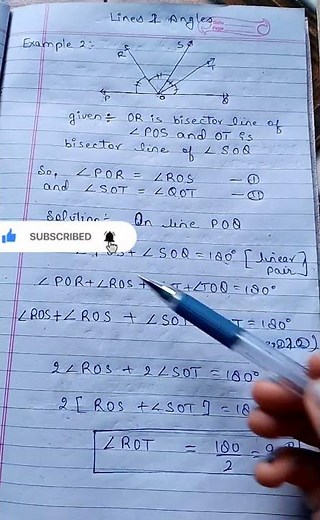 Lines & Angles
Example 2:-
R
S
T
P
O
Q
given:- OR is bisector line of
∠POS and OT is
bisector line of ∠SOQ
So, ∠POR = ∠ROS — I
and ∠SOT = ∠QOT — II
Solution:- On line POQ
SUBSCRIBED
+ ∠SOQ = 180° [linear
pair
∠POR+∠ROS + +∠TOQ=180°
∠ROS+∠ROS + = 180°
2∠ROS + 2∠SOT = 180°
2[ROS +∠SOT] =
∠ROT = 180
2